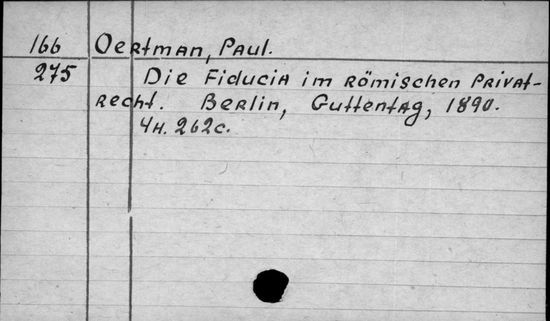 166 Oertman, Paul.
275 Die Fiducia im römischen Privat-
recht. Berlin, Guttentag, 1890.
4H. 262c.